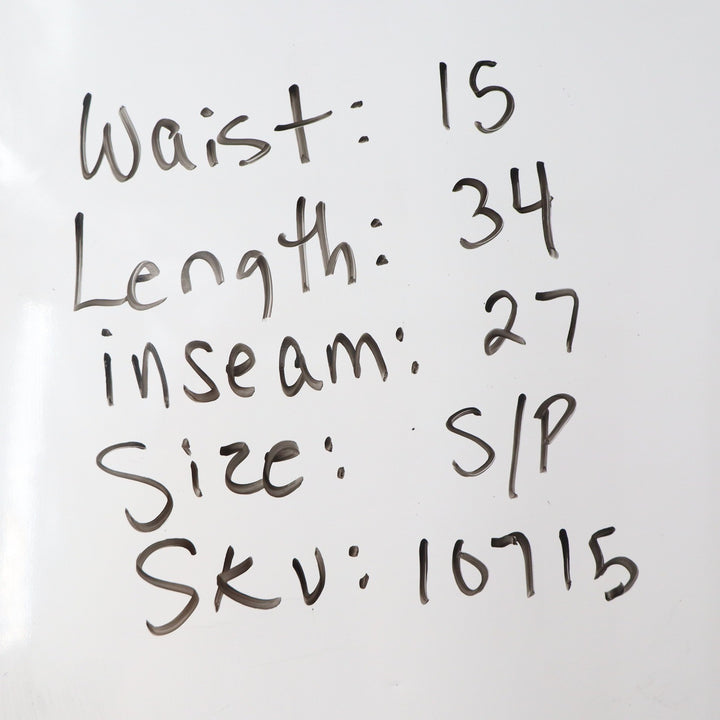 Waist: 15
Length: 34
inseam: 27
Size: S/P
SKU: 10715